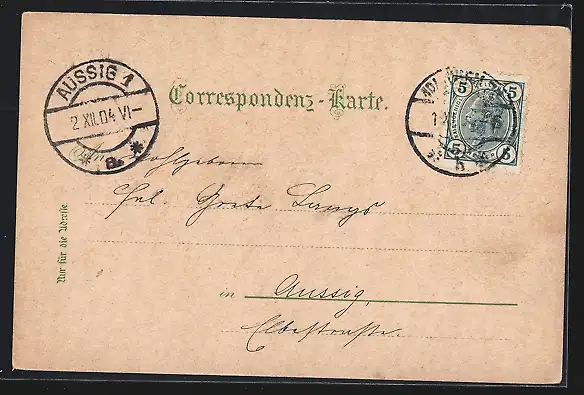 AUSSIG 1
2 XII.04 VI-
* a *
Correspondenz-Karte.
5 5
5 5
Wohlgeboren
Frl. Grete Langs
in Aussig,
Elbestrasse.
Nur für die Adresse.